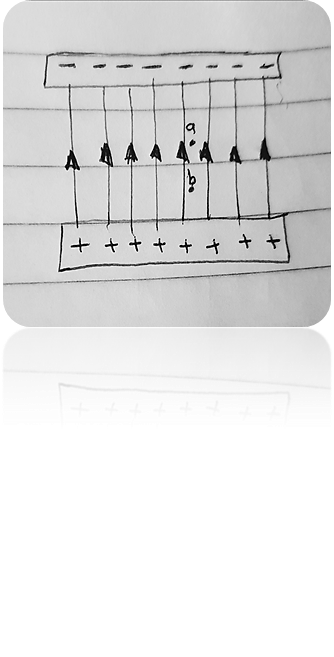 - - - - - - - -
a
b
+ + + + + + + +